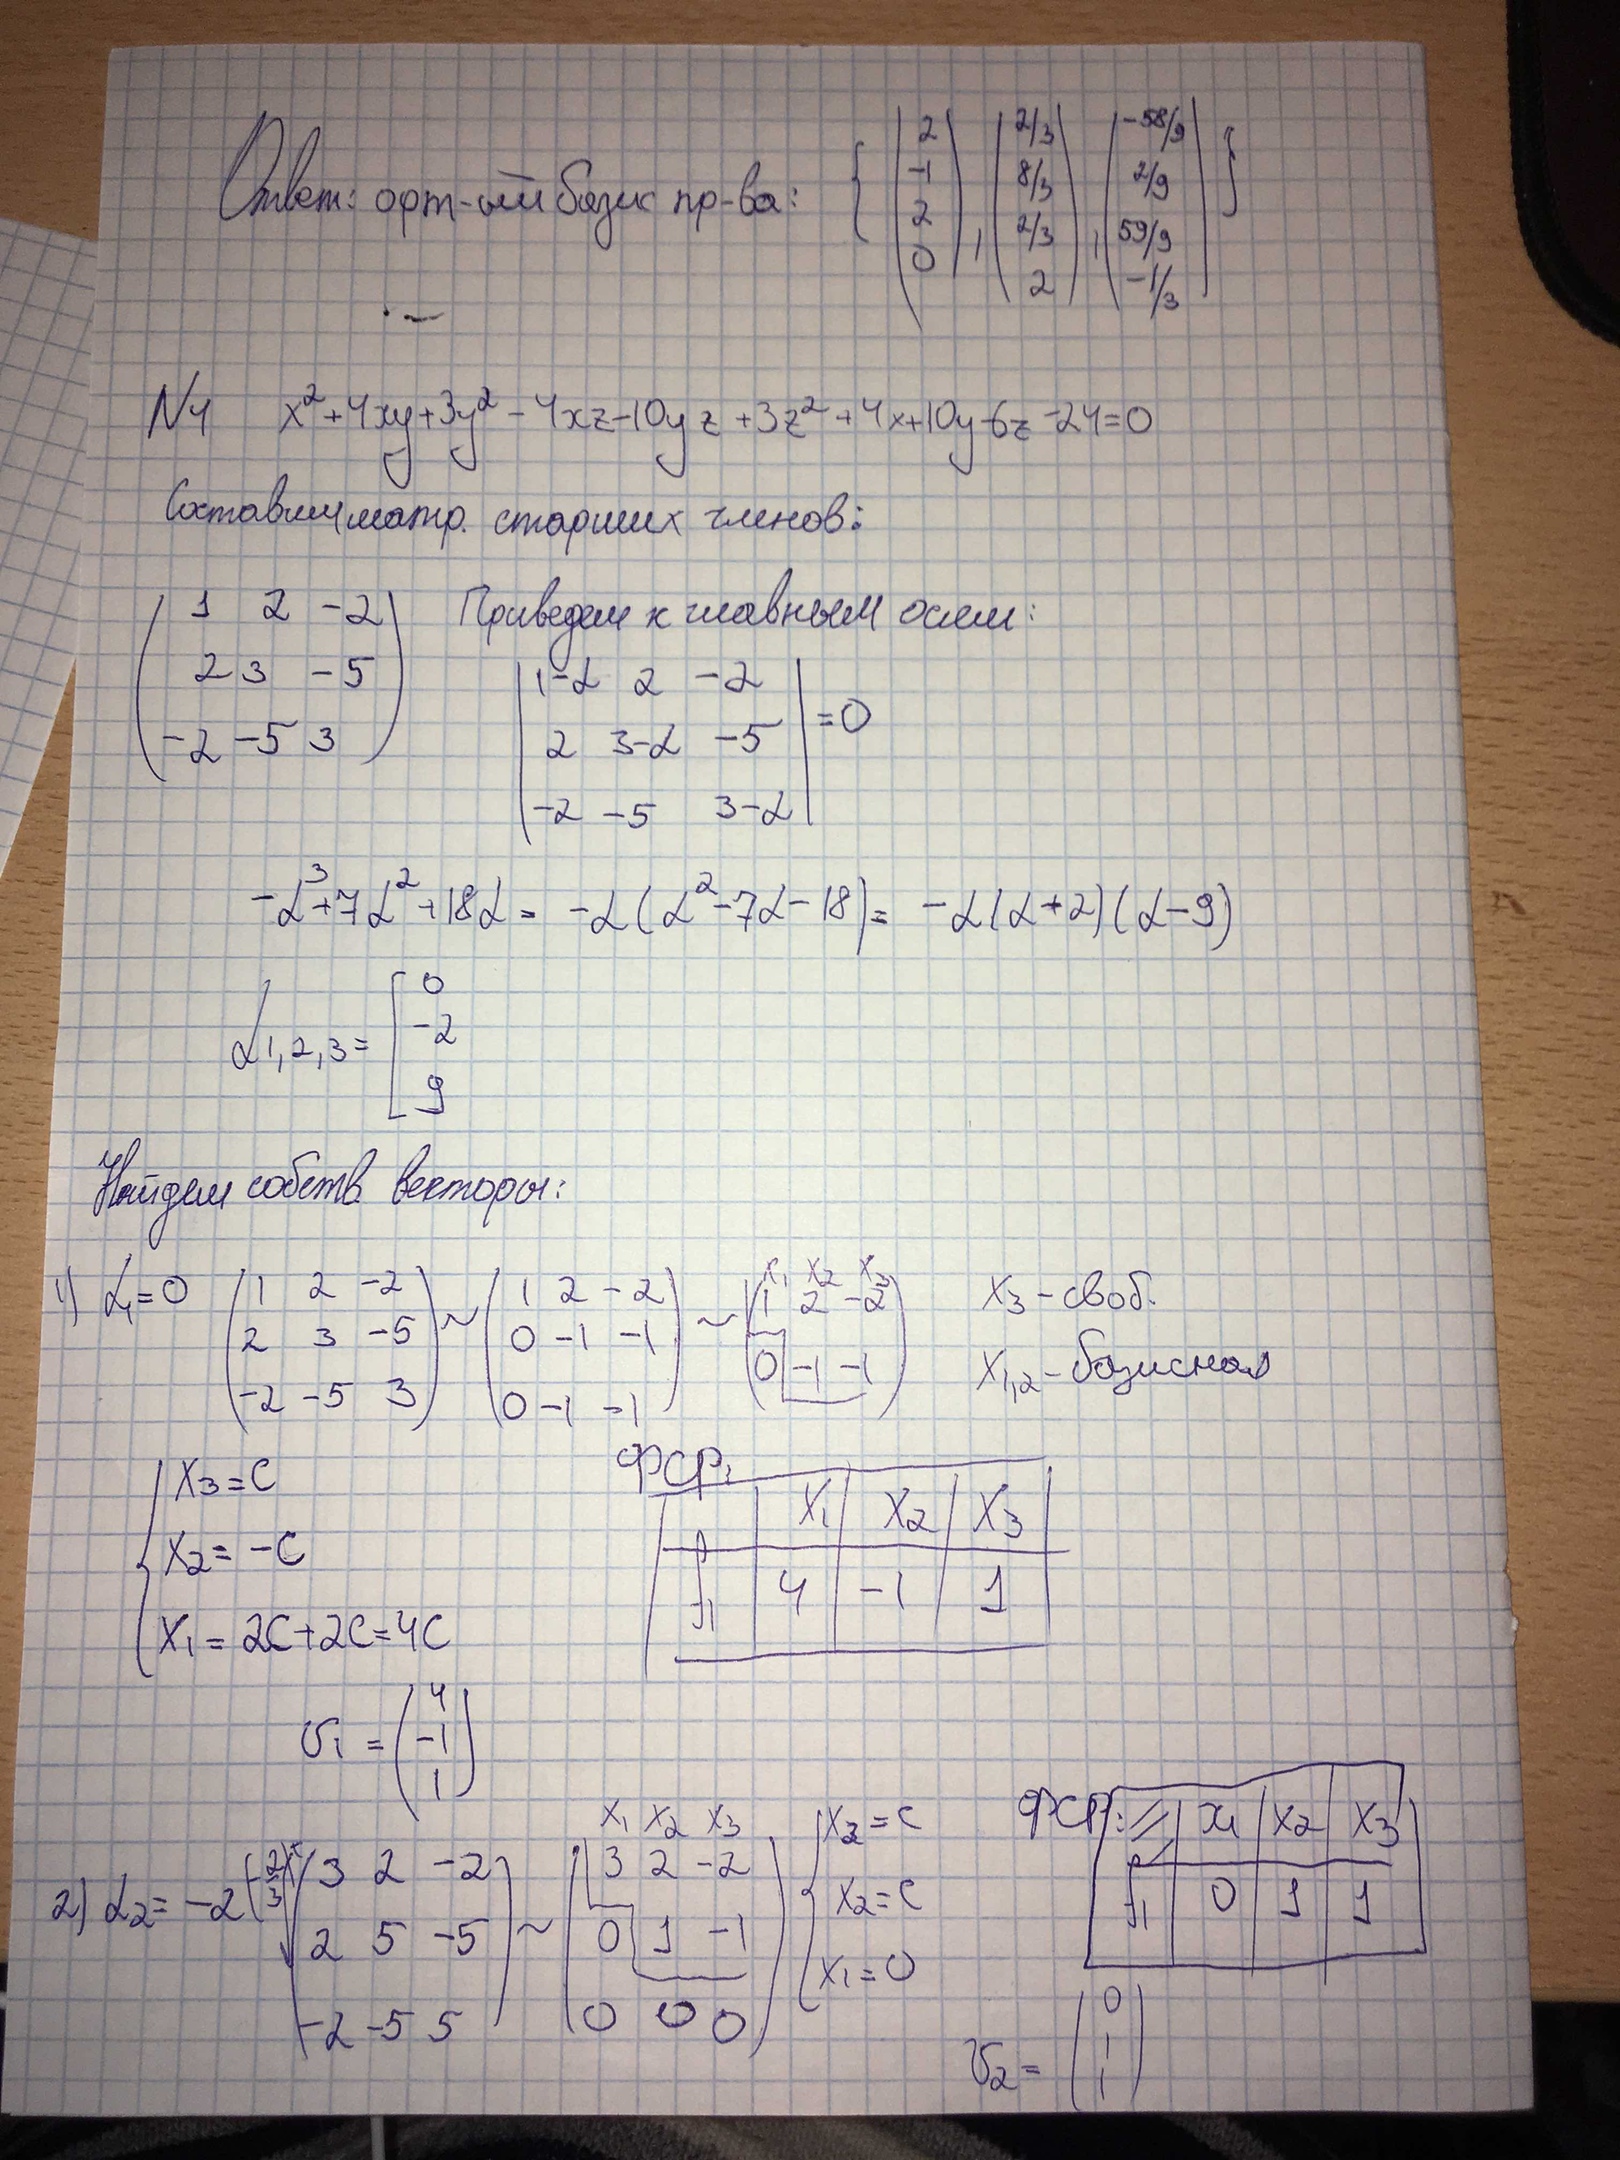 Ответ: орт-ый базис пр-ва: { (2 -1 2 0), (2/3 8/3 2/3 2), (-58/9 2/9 59/9 -1/3) }
N4 x²+4xy+3y²-4xz-10yz+3z²+4x+10y-6z-24=0
Составим матр. старших членов:
1 2 -2 Приведем к главным осям:
2 3 -5
-2 -5 3
1-λ 2 -2
2 3-λ -5 =0
-2 -5 3-λ
-λ³+7λ²+18λ = -λ(λ²-7λ-18)= -λ(λ+2)(λ-9)
λ1,2,3= [ 0
-2
9
Найдем собств. векторы:
1) λ1=0 (1 2 -2 ~ (1 2 -2 ~ (x1 x2 x3
1 2 -2 x3-своб.
2 3 -5 0 -1 -1 0 -1 -1 x1,2-базисная
-2 -5 3) 0 -1 -1)
x3=C
x2=-C
x1=2C+2C=4C
ФСР:
x1 x2 x3
f1 4 -1 1
v1 = (4 -1 1)
2) λ2=-2 (-2/3) (3 2 -2
2 5 -5 ~
-2 -5 5)
x1 x2 x3
3 2 -2
0 1 -1
0 0 0
x3=C
x2=C
x1=0
ФСР:
x1 x2 x3
f1 0 1 1
v2= (0 1 1)